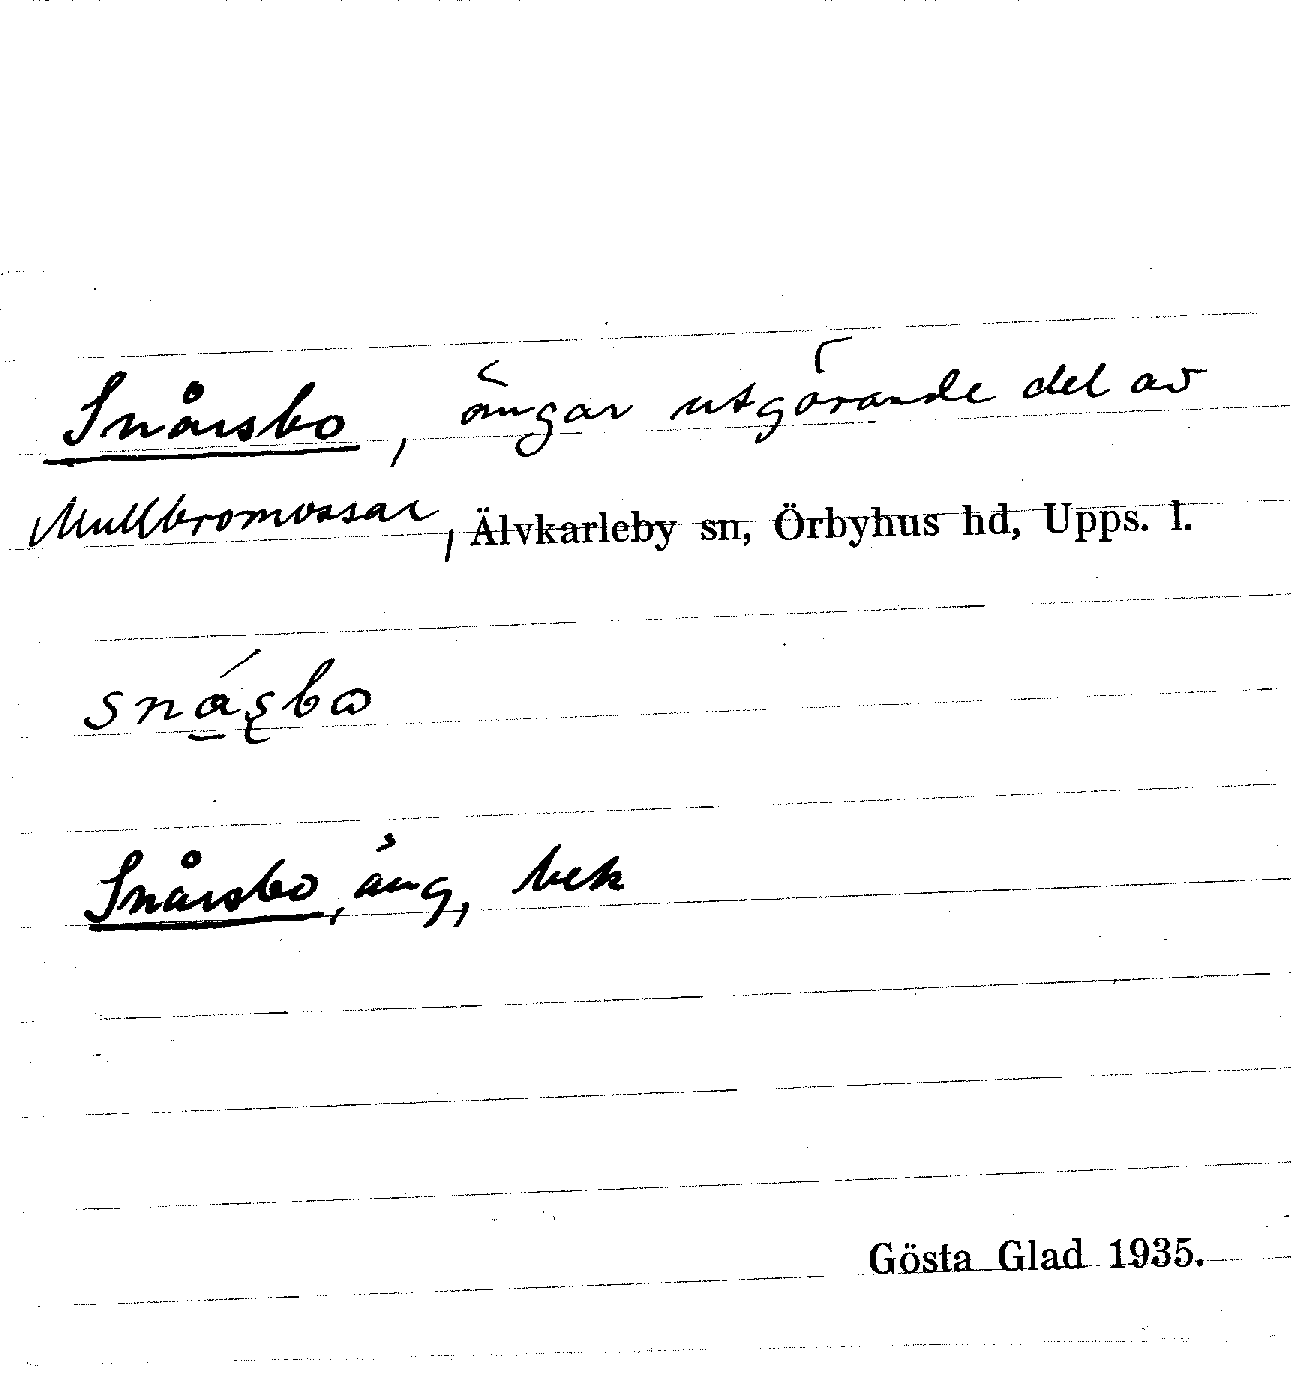 Snårsbo, ängar utgörande del av
Mullbromossar, Älvkarleby sn, Örbyhus hd, Upps. l.
Snårsbo, äng, bek
Gösta Glad 1935.